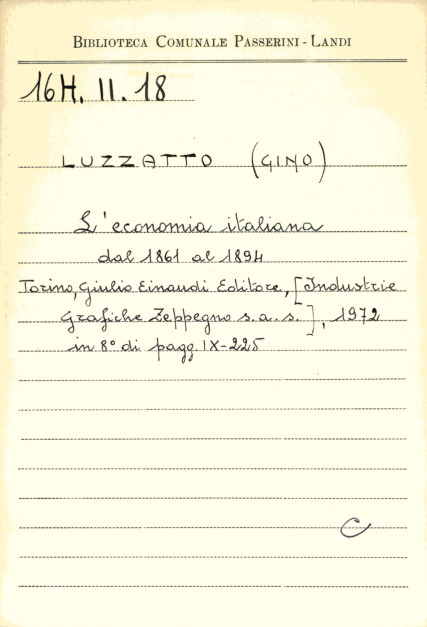 BIBLIOTECA COMUNALE PASSERINI - LANDI
16H. II. 18
LUZZATTO (GINO)
L'economia italiana
dal 1861 al 1894
Torino, Giulio Einaudi Editore, [Industrie
Grafiche Zeppegno s.a.s.], 1972
in 8° di pagg. IX-225
C